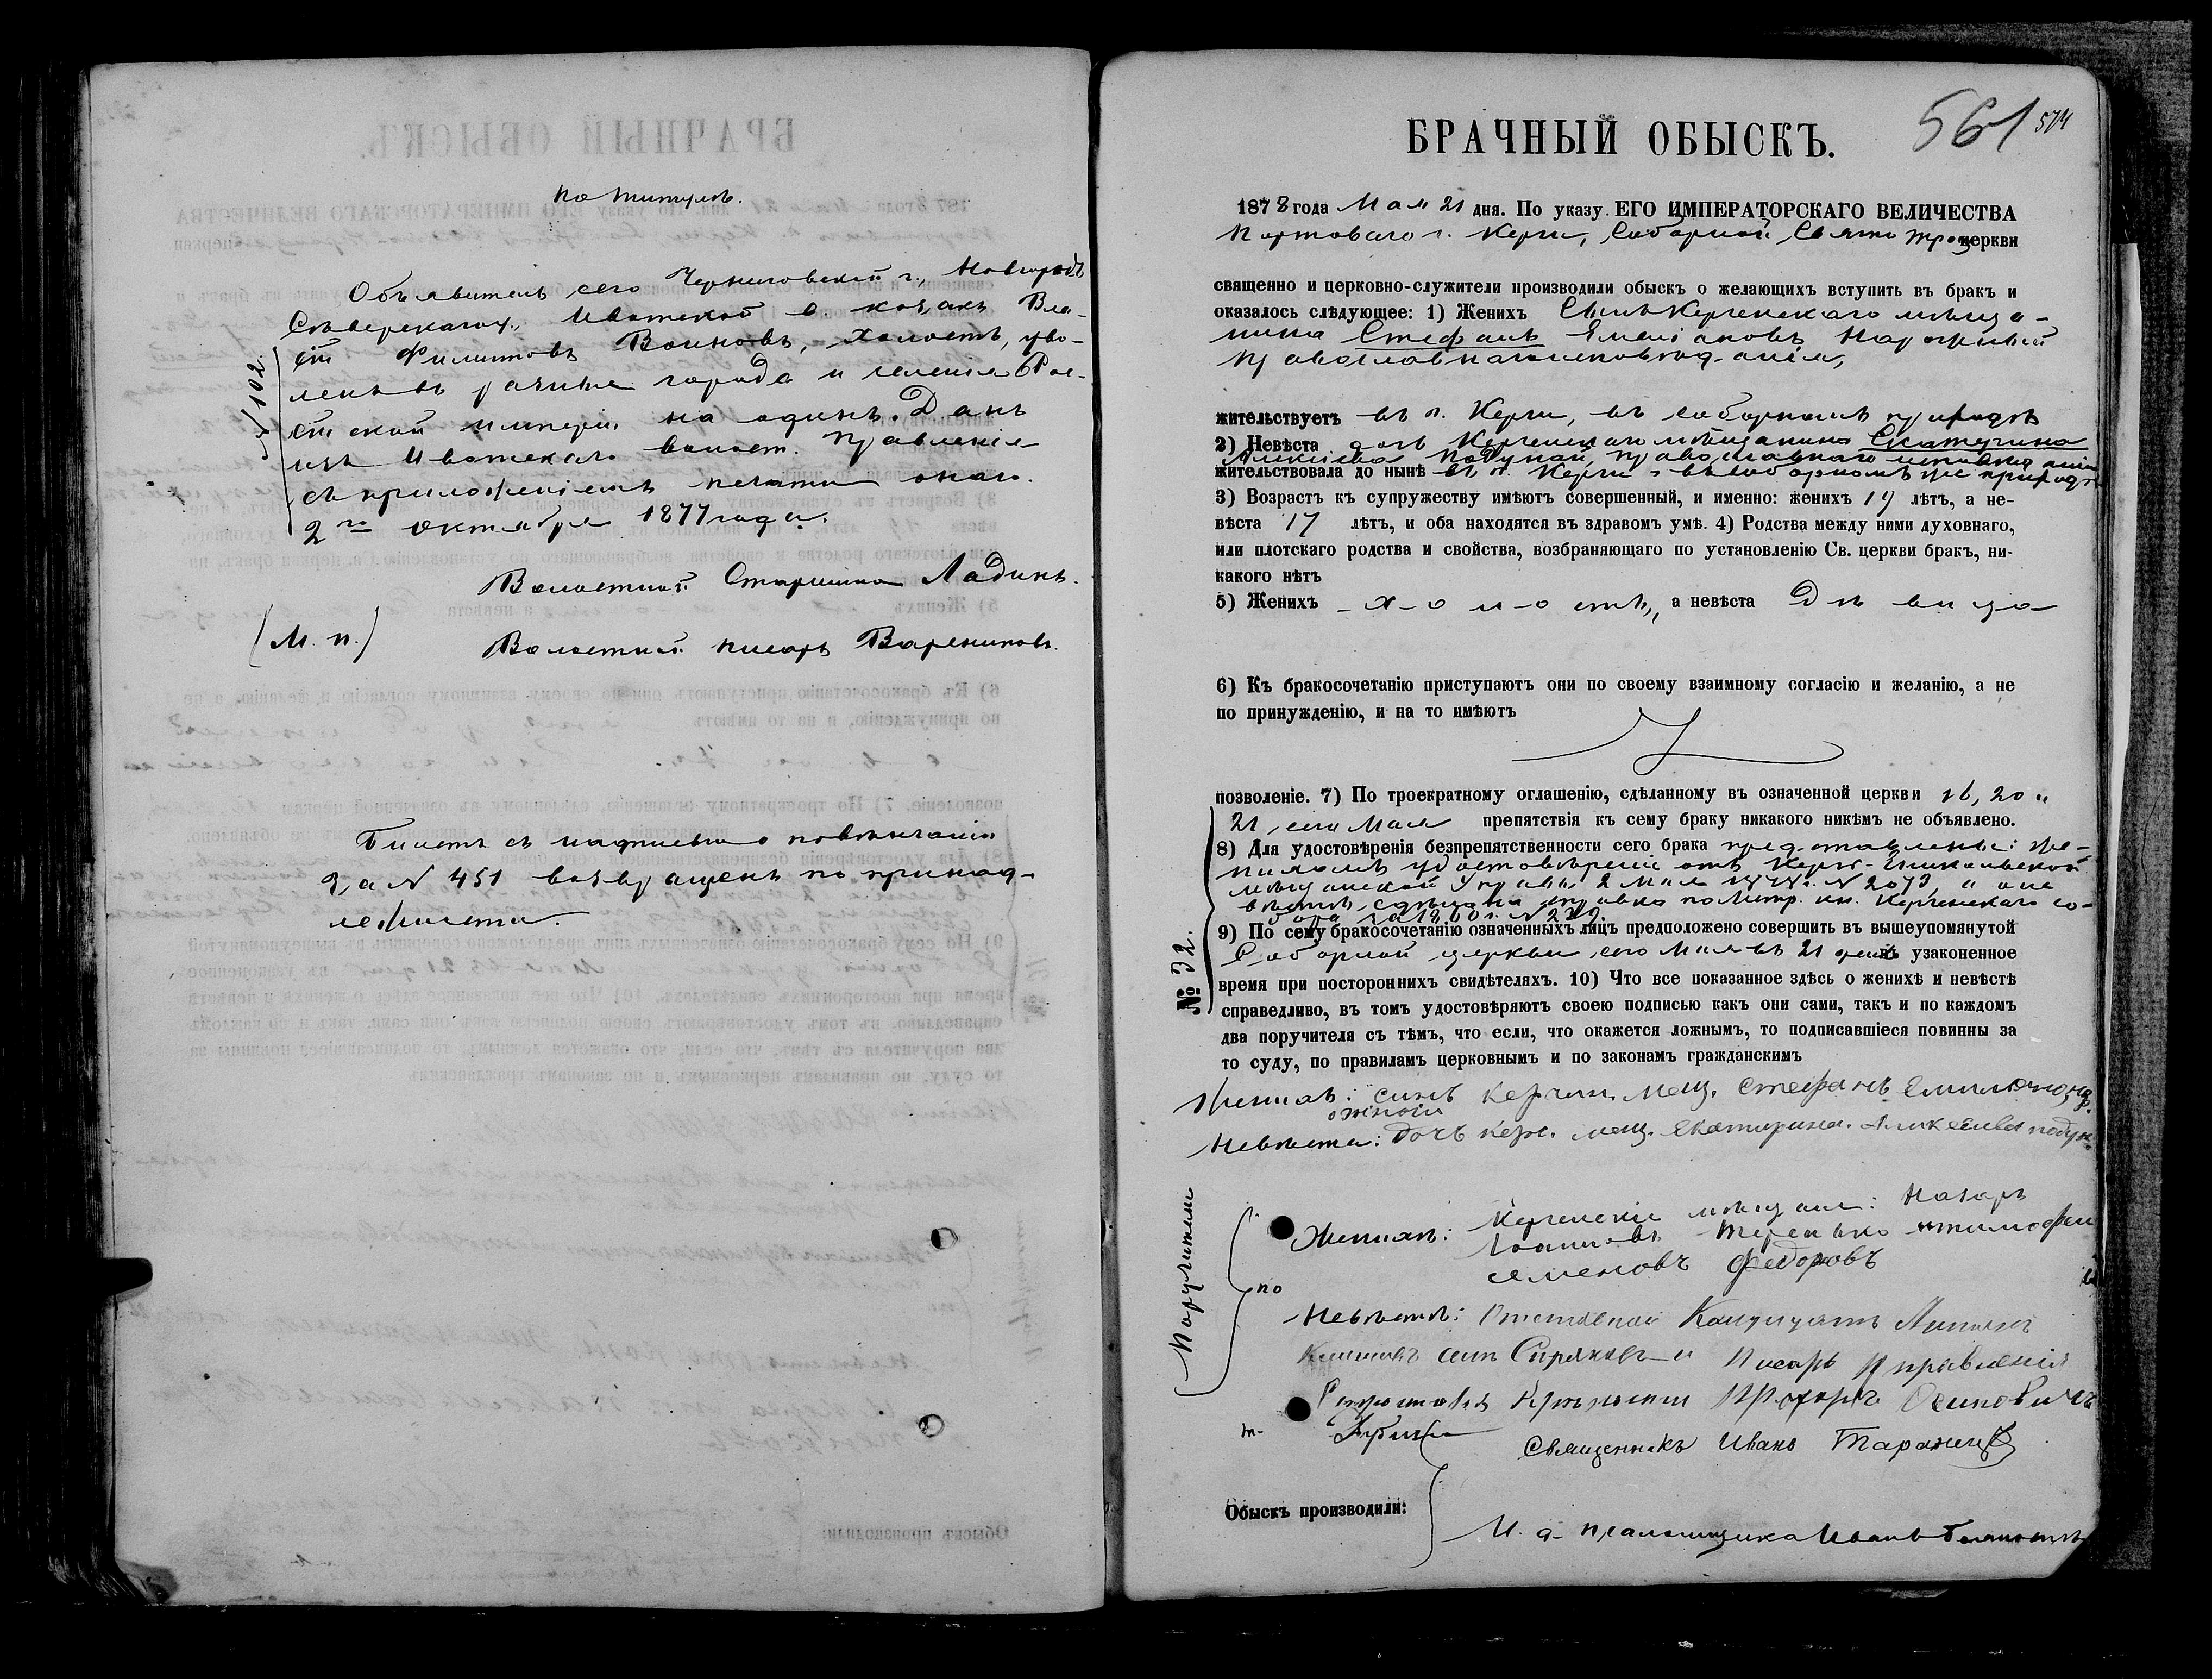 по титулѣ.
Объявитель сего Черниговской г., Новгородъ
Сѣверскаго у., Ивотской в. козакъ Вла-
сій Филиповъ Воиновъ, холостъ, уво-
ленъ въ разные города и селенія Рос-
сійской имперіи на одинъ. Данъ
изъ Ивотскаго волост. правленія
съ приложеніемъ печати онаго.
2го октября 1877 года.
№ 102.
Волостной Старшина Ладинъ.
(М. п.) Волостной писарь Варениковъ.
Билетъ съ надписью о повѣнчаніи
за № 451 возвращенъ по принад-
лежности.
561 574
БРАЧНЫЙ ОБЫСКЪ.
1878 года Мая 21 дня. По указу ЕГО ИМПЕРАТОРСКАГО ВЕЛИЧЕСТВА
Портоваго г. Керчи, Соборной Свято Троиц церкви
священно и церковно-служители производили обыскъ о желающихъ вступить въ бракъ и
оказалось слѣдующее: 1) Женихъ Сынъ Керченскаго мѣща-
нина Стефанъ Емеліановъ
православнаго исповѣданія,
жительствуетъ въ г. Керчи, въ соборномъ приходѣ
2) Невѣста дочь Керченскаго мѣщанина Екатерина
Алексіева Подунай, православнаго исповѣданія
жительствовала до нынѣ въ г. Керчи въ соборномъ же приходѣ
3) Возрастъ къ супружеству имѣютъ совершенный, и именно: женихъ 19 лѣтъ, а не-
вѣста 17 лѣтъ, и оба находятся въ здравомъ умѣ. 4) Родства между ними духовнаго,
или плотскаго родства и свойства, возбраняющаго по установленію Св. церкви бракъ, ни-
какого нѣтъ
5) Женихъ - х-о л-о стъ, а невѣста Дѣ ви ца
6) Къ бракосочетанію приступаютъ они по своему взаимному согласію и желанію, а не
по принужденію, и на то имѣютъ
позволеніе. 7) По троекратному оглашенію, сдѣланному въ означенной церкви 16, 20 и
21, сего Мая препятствія къ сему браку никакого никѣмъ не объявлено.
8) Для удостовѣренія безпрепятственности сего брака представлены: же-
нихомъ удостовѣреніе отъ Керчь-Еникальской
мѣщанской Управы, 2 Мая 1878 г. № 2073, и о не
вѣстѣ, сдѣлана справка по Метр. кн. Керченскаго со-
бора за 1860 г. № 229.
9) По сему бракосочетанію означенныхъ лицъ предположено совершить въ вышеупомянутой
Соборной церкви, сего Мая въ 21 день въ узаконенное
время при постороннихъ свидѣтеляхъ. 10) Что все показанное здѣсь о женихѣ и невѣстѣ
справедливо, въ томъ удостовѣряютъ своею подписью какъ они сами, такъ и по каждомъ
два поручителя съ тѣмъ, что если, что окажется ложнымъ, то подписавшіеся повинны за
то суду, по правиламъ церковнымъ и по законамъ гражданскимъ
№ 32.
Женихъ: синъ Керчен. мещ. Стефанъ
Невѣста: Дочь керч. мещ. Екатирина. Аликсеева подун
Поручители
по
Женихѣ: Керченскіе мѣщане: Назаръ
Іоанновъ Теренько и тимофеи
семеновъ федоровъ
Невѣстѣ: Отставной Кандидатъ
сынъ Спряковъ и Писарь Управленія
Прохоръ Осиповичъ
Священникъ Иванъ
Обыскъ производили:
И. д. псаломщика Иванъ